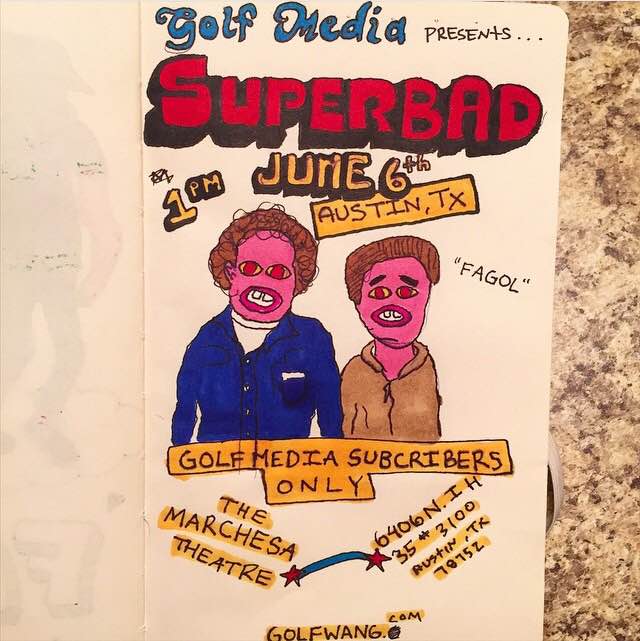 Golf Media PRESENTS...
SUPERBAD
1PM JUNE 6th
AUSTIN, TX
"FAGOL"
GOLF MEDIA SUBCRIBERS
ONLY
THE
MARCHESA
THEATRE
6406 N. IH
35 # 3100
AUSTIN, TX
78752
GOLFWANG.COM